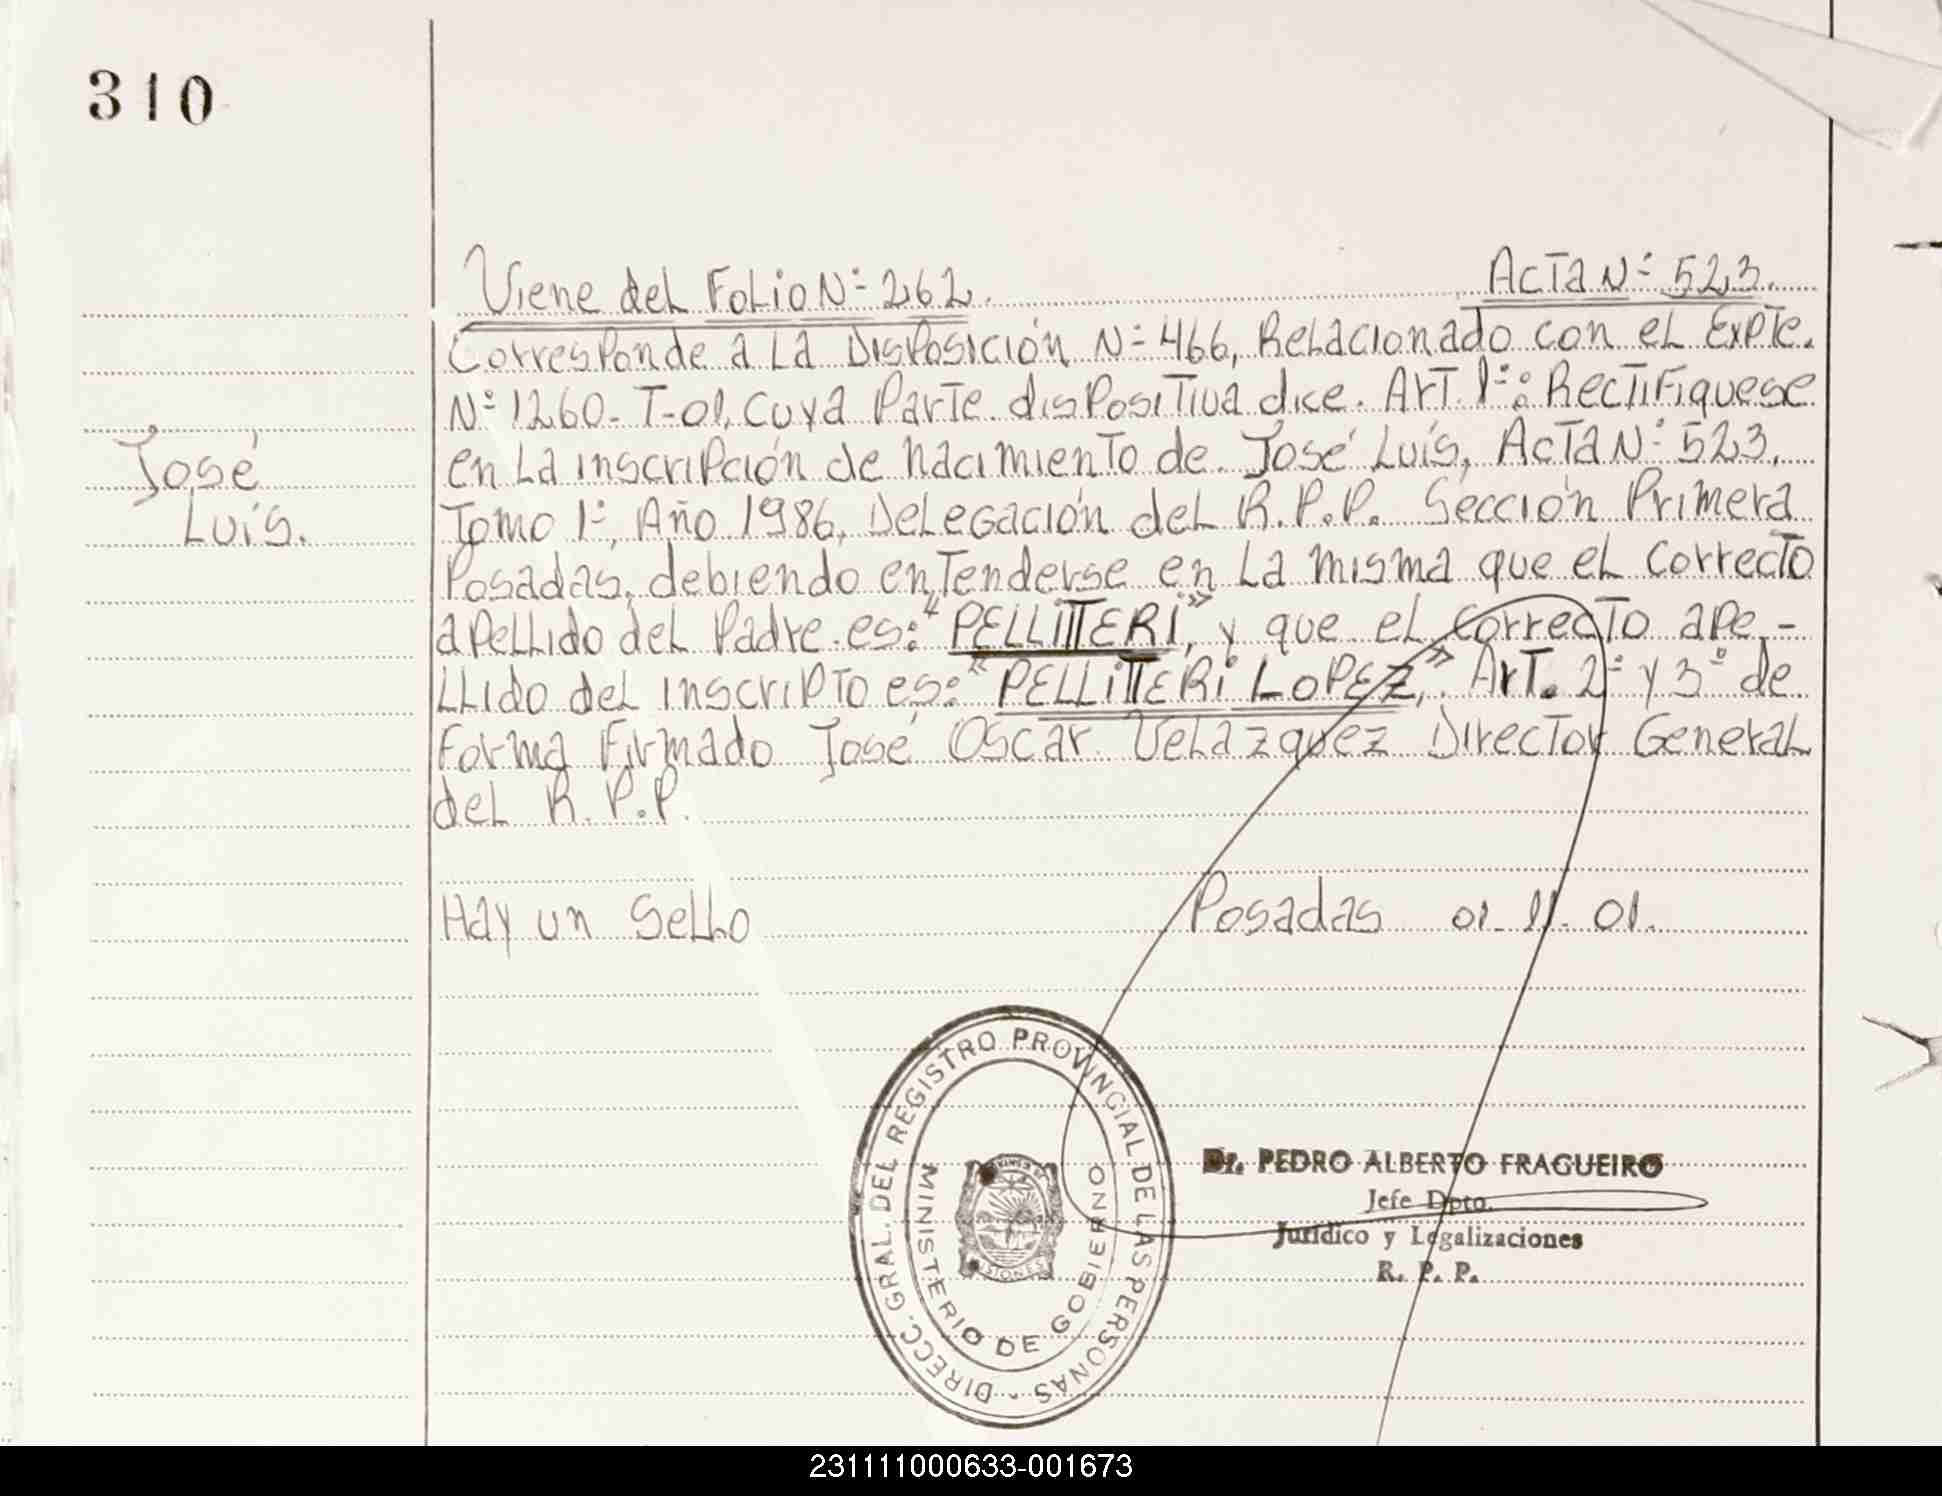 310
Viene del Folio Nº 262. Acta Nº 523.
Corresponde a la Disposición Nº 466, Relacionado con el Expte.
Nº 1260-T-01, cuya Parte dispositiva dice. Art. 1º: Rectifiquese
en la inscripción de nacimiento de José Luís, Acta Nº 523,
Tomo 1º, Año 1986, Delegación del R.P.P. Sección Primera
Posadas, debiendo entenderse en la misma que el correcto
apellido del Padre es: "PELLITTERI", y que el correcto ape-
llido del inscripto es: "PELLITTERI LOPEZ", Art. 2º y 3º de
forma Firmado José Oscar Velazquez Director General
del R.P.P.
José
Luís.
Hay un Sello Posadas 01-11-01.
DIRECC. GRAL. DEL REGISTRO PROVINCIAL DE LAS PERSONAS -
MINISTERIO DE GOBIERNO
MISIONES
Dr. PEDRO ALBERTO FRAGUEIRO
Jefe Dpto.
Jurídico y Legalizaciones
R. P. P.
231111000633-001673